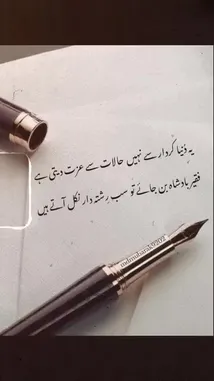 یہ دُنیا کردار سے نہیں حالات سے عزت دیتی ہے
فقیر بادشاہ بن جائے تو سب رشتہ دار نکل آتے ہیں